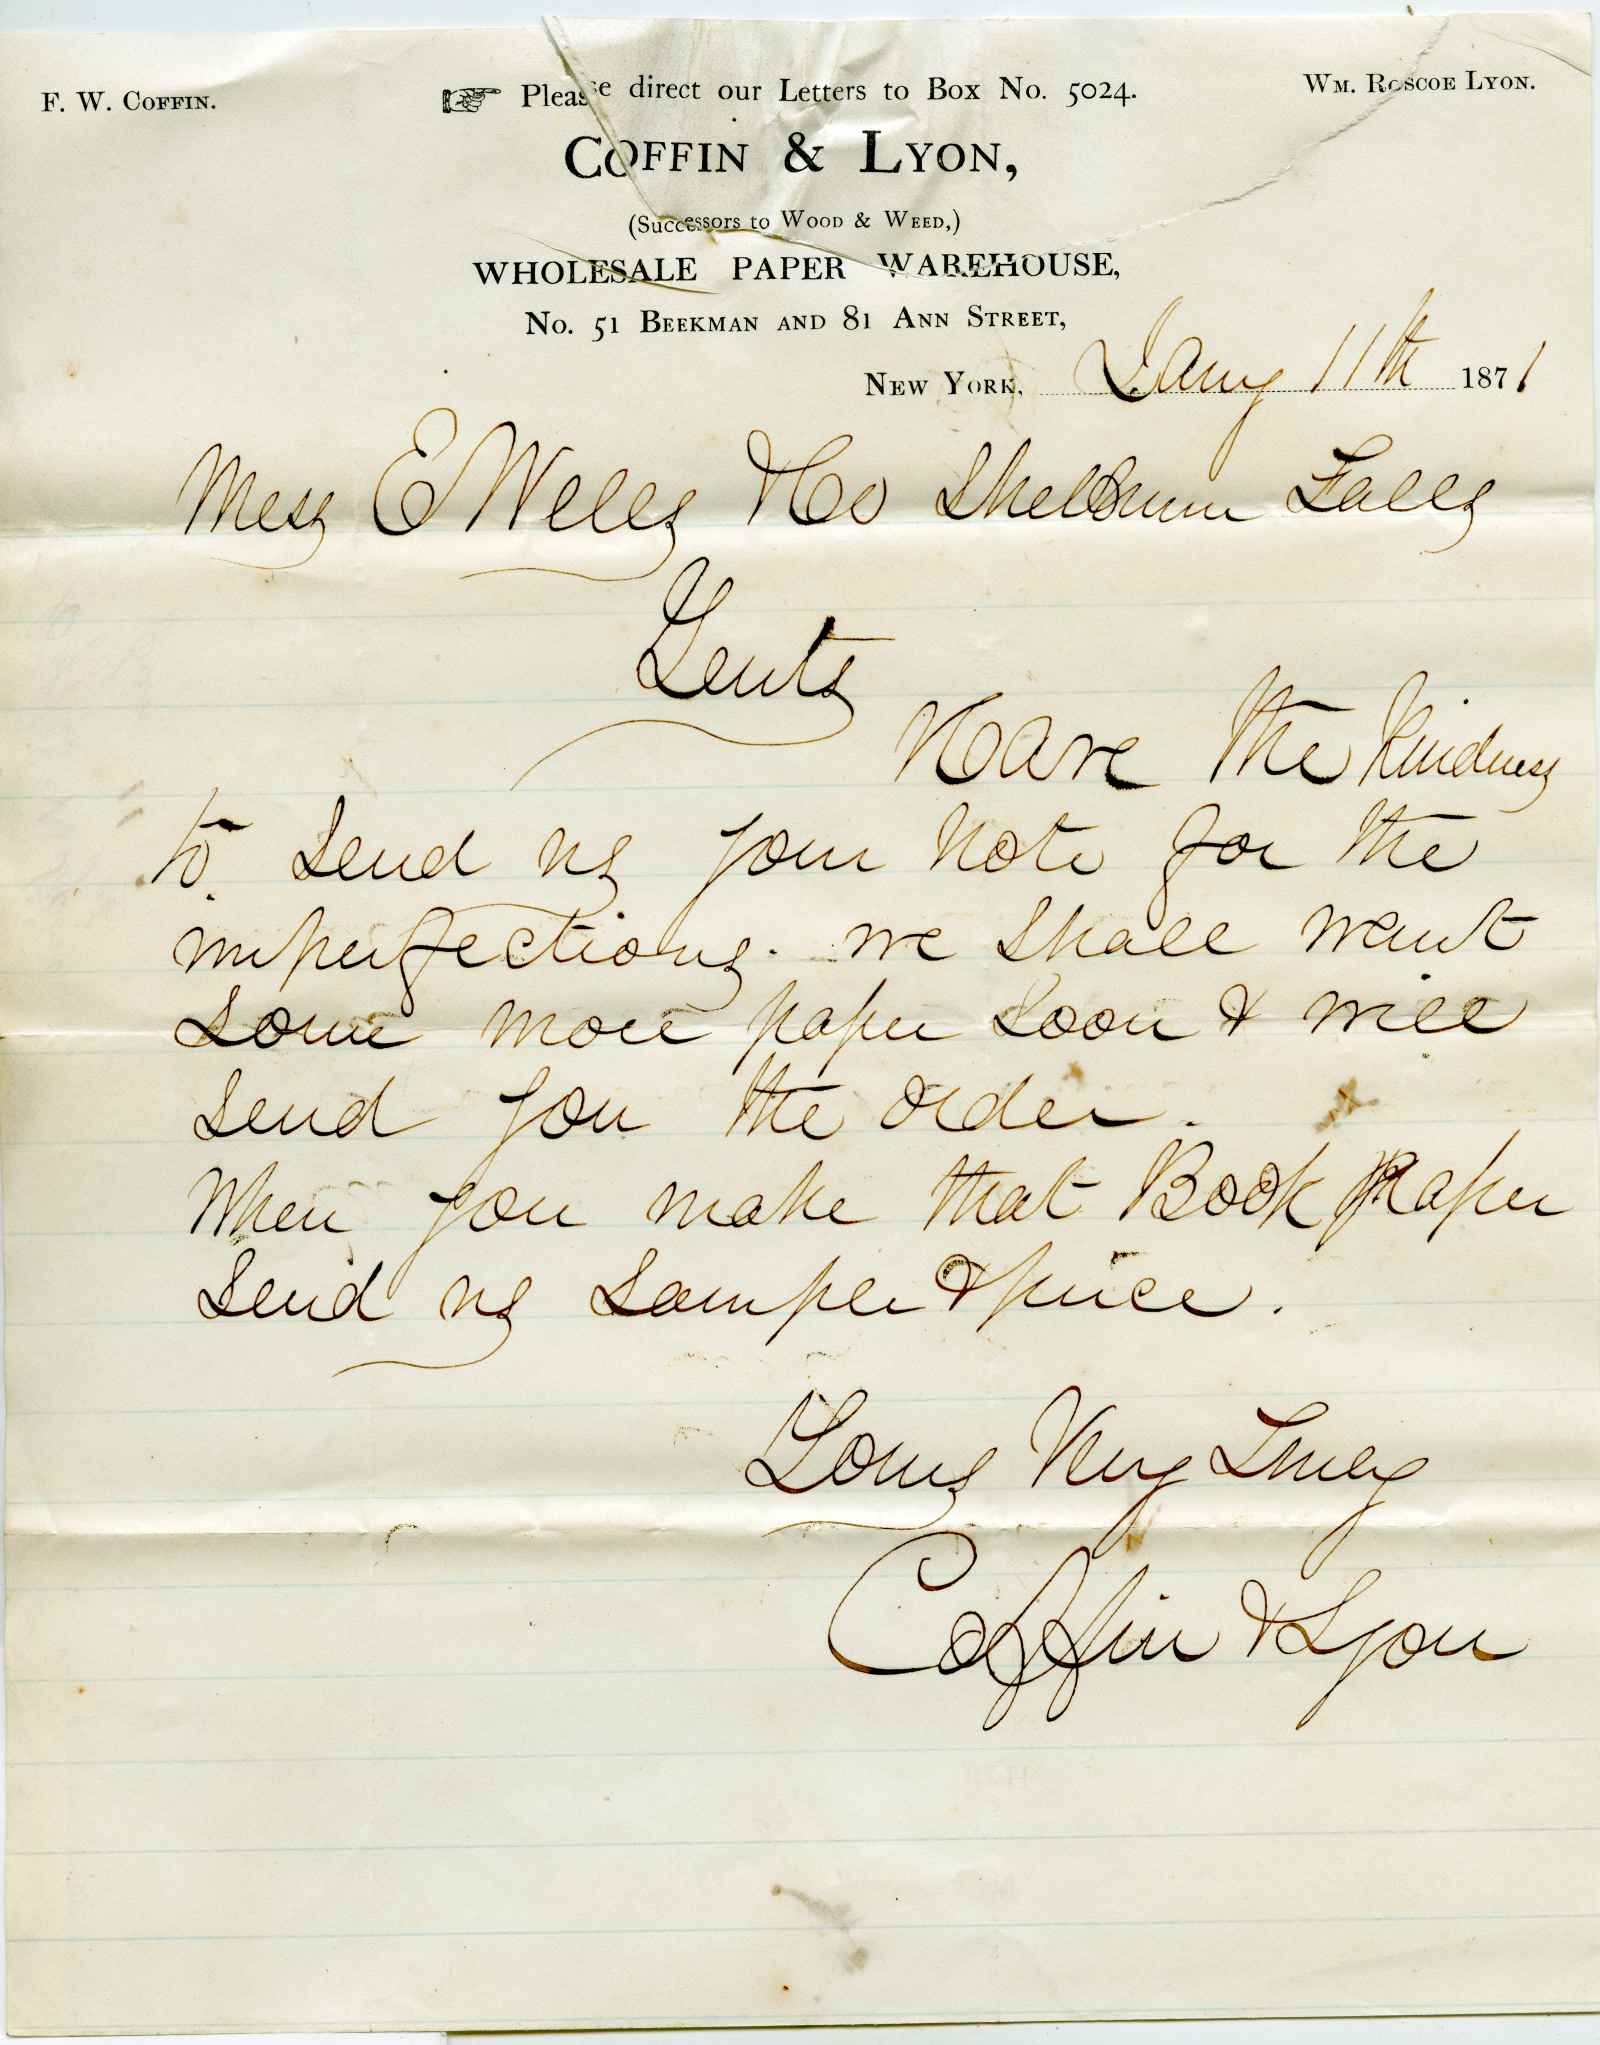 F. W. Coffin.
Please direct our Letters to Box No. 5024.
Wm. Roscoe Lyon.
Coffin & Lyon,
(Successors to Wood & Weed,)
WHOLESALE PAPER WAREHOUSE,
No. 51 Beekman and 81 Ann Street,
New York, Jany 11th 1871
Mess E Wells & Co Shelburn Falls
Gents
Have the kindness
to send us your note for the
imperfections. we shall want
some more paper soon & will
send you the order.
When you make that Book paper
send us samples & price.
Yours Very Truly
Coffin & Lyon